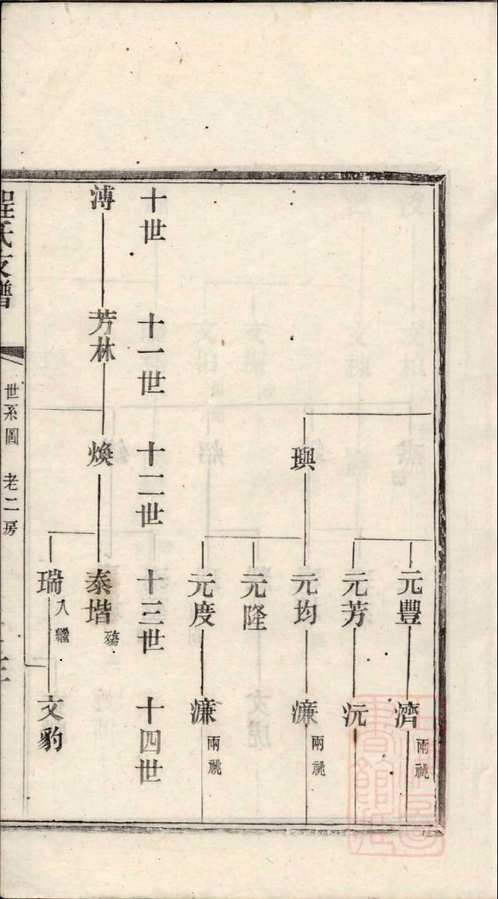 璵
元豐
元芳
元均
元隆
元度
濟 兩祧
沅
濂 兩祧
濂 兩祧
十世
十一世
十二世
十三世
十四世
溥
芳林
煥
泰堦 殤
瑞 入繼
文豹
程氏支譜
世系圖 老二房